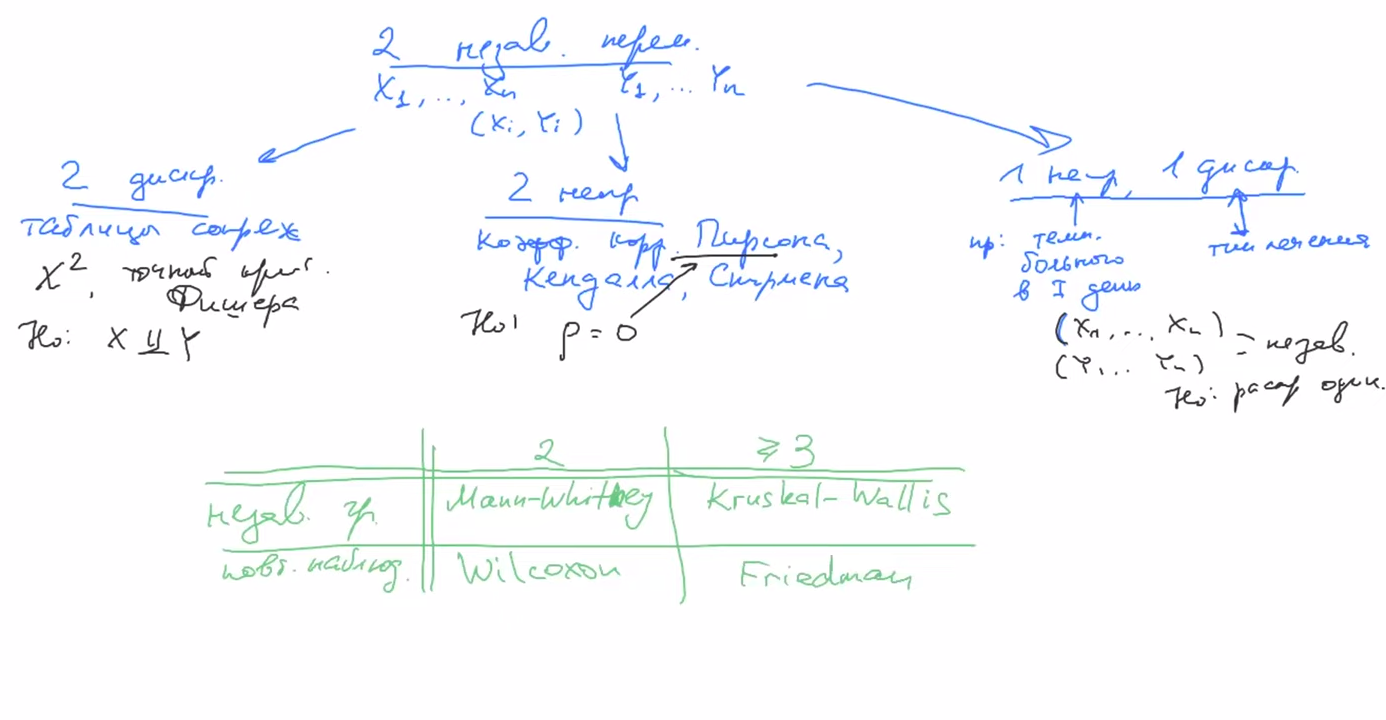 2 незав. перем.
X₁, ..., Xₙ Y₁, ... Yₙ
(Xᵢ, Yᵢ)
2 дискр.
таблицы сопряж
χ², точный крит.
Фишера
H₀: X ⫫ Y
2 непр
Коэфф. корр. Пирсона,
Кендалла, Спирмена
H₀: ρ = 0
1 непр, 1 дискр.
пр: темп.
больного
в I день
тип лечения
(X₁, ... Xₙ)
(Y₁ ... Yₙ)
незав.
H₀: распр один.
2 ⩾ 3
незав. гр. Mann-Whitney Kruskal-Wallis
повт. наблюд. Wilcoxon Friedman